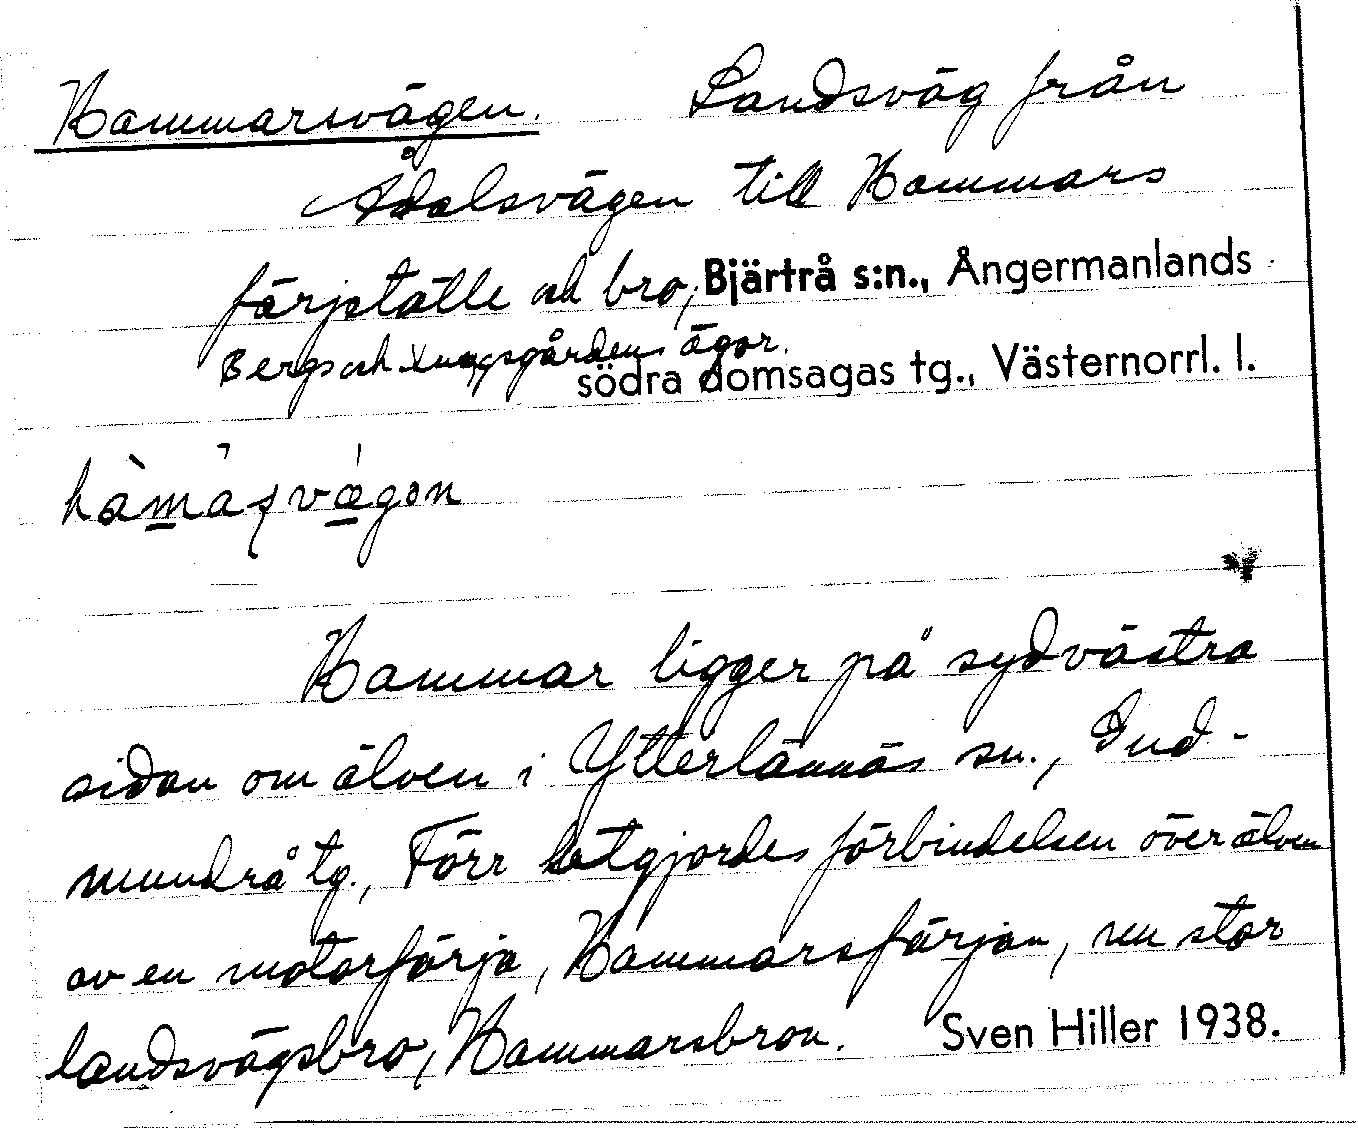 Hammarsvägen. Landsväg från
Ådalsvägen till Hammars
färjställe och bro, Bjärtrå s:n., Ångermanlands
Bergs och Kungsgårdens ägor.
södra domsagas tg., Västernorrl. l.
Hammar ligger på sydvästra
sidan om älven i Ytterlännäs sn., Gud-
mundrå tg., Förr utgjordes förbindelsen över älven
av en motorfärja, Hammarsfärjan, nu stor
landsvägsbro, Hammarsbron. Sven Hiller 1938.